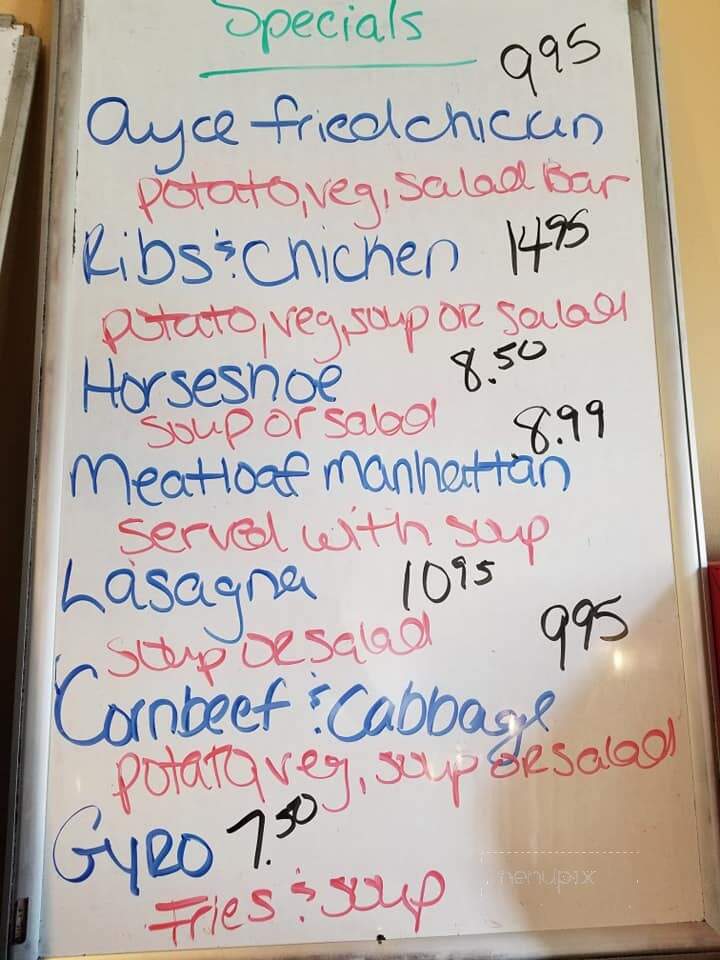 Specials
995
Ayce fried chicken
potato, veg, salad Bar
Ribs & Chicken 1495
potato, veg, soup OR salad
Horseshoe 8.50
soup or salad
8.99
Meatloaf manhattan
served with soup
Lasagna 1095
soup OR salad
995
Cornbeef & Cabbage
potato, veg, soup OR salad
GYRO 7.50
Fries & soup
menupix